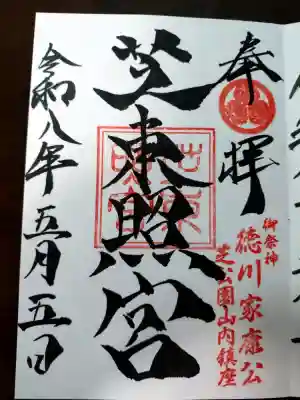 奉拝
御祭神
徳川家康公
芝公園山内鎮座
芝東照宮
令和八年五月五日